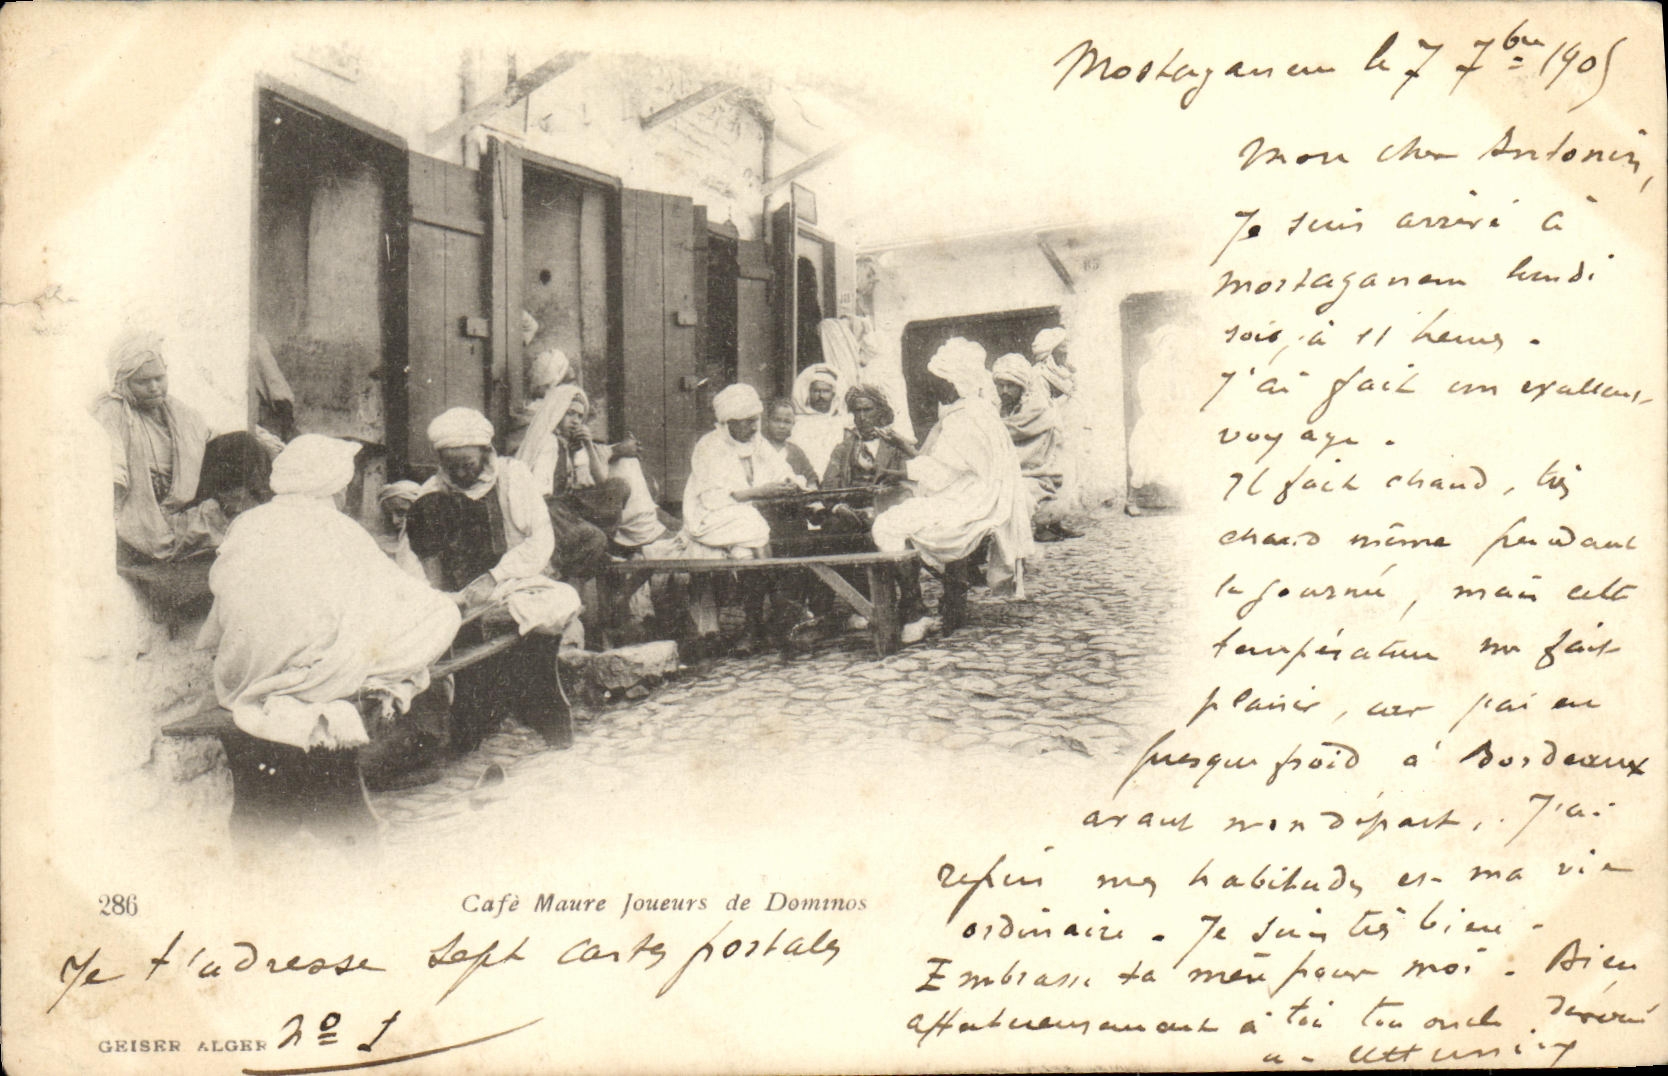 Mostaganem le 7 7bre 1905
Mon cher Antonin,
Je suis arrivé à
Mostaganem lundi
soir, à 11 heures.
J'ai fait un excellent
voyage.
Il fait chaud, très
chaud même pendant
la journée, mais cette
température me fait
plaisir, car j'ai eu
presque froid à Bordeaux
avant mon départ. J'ai
repris mes habitudes et ma vie
ordinaire. Je suis très bien.
Embrasse ta mère pour moi. Bien
affectueusement à toi ton oncle dévoué
286
Cafè Maure Joueurs de Dominos
Je t'adresse sept cartes postales
GEISER ALGER
No 1